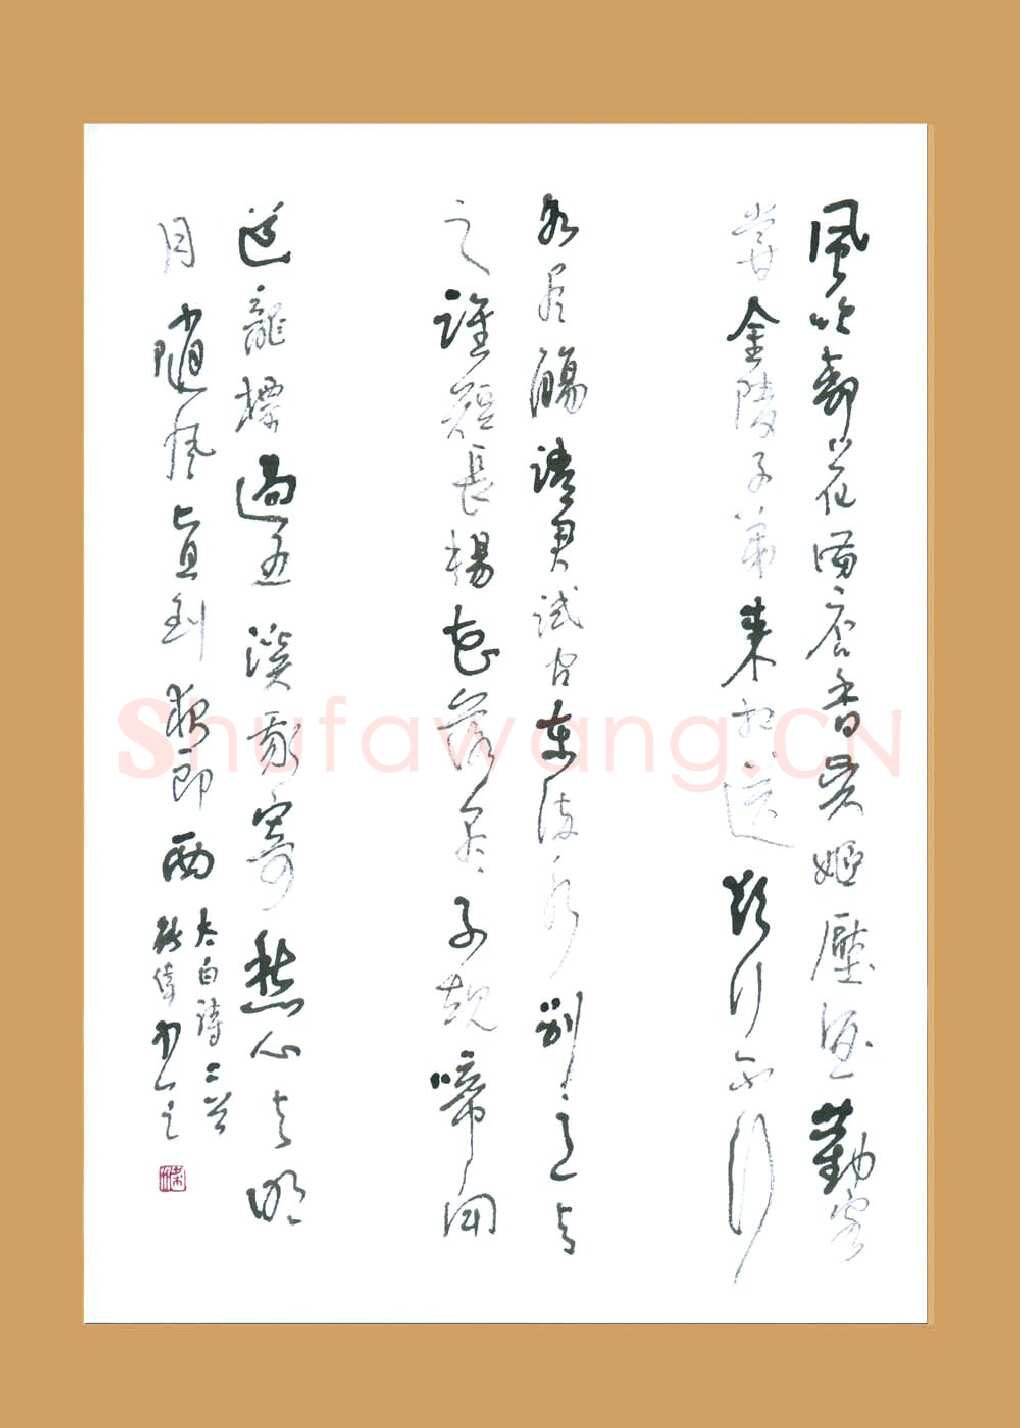 風吹柳花滿店香吳姬壓酒勸客
嘗金陵子弟來相送欲行不行
各尽觴請君試問東流水別意与
之誰短長楊花落尽子規啼聞
道龍標過五溪我寄愁心与明
月隨風直到夜郎西
太白詩二首
偉書
Shufawang.CN